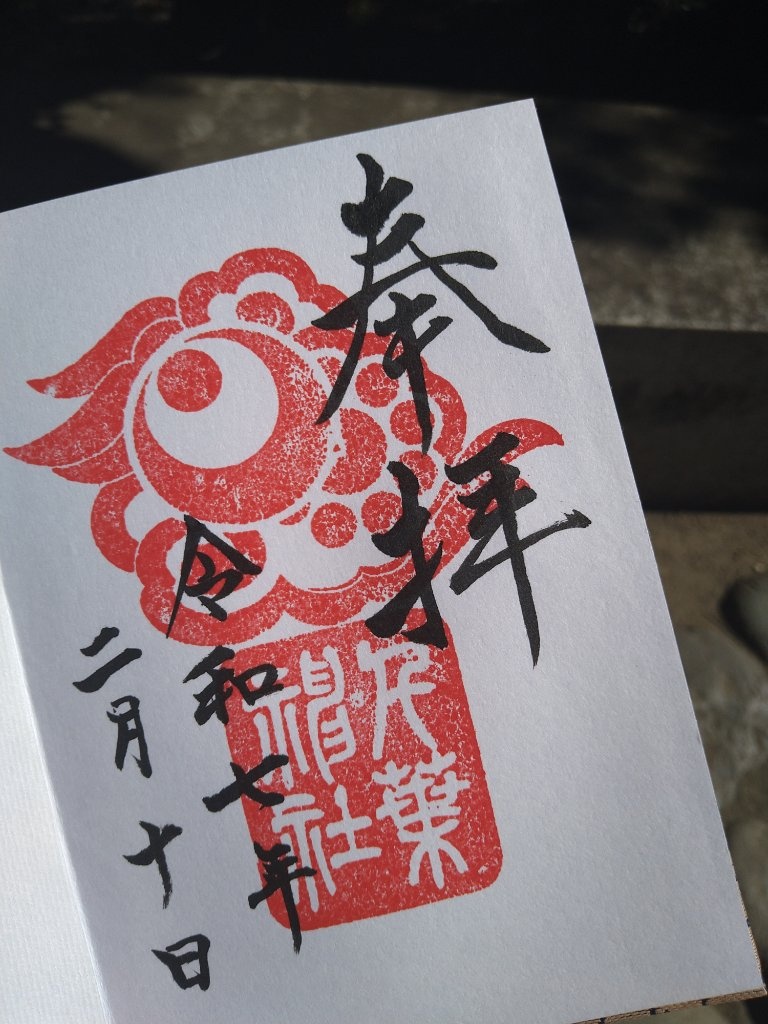 奉拝
千葉
神社
令和七年
二月十日